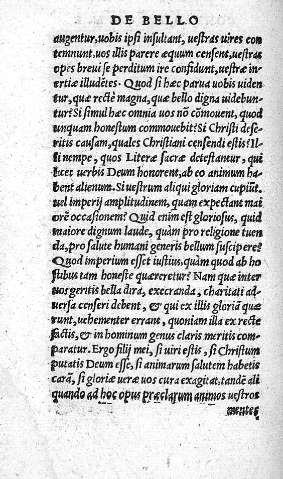 DE BELLO
augentur, uobis ipsi insultant, uestras uires con
temnunt, uos illis parere æquum censent, uestras
opes breui se perditum ire confidunt, uestræ in-
ertiæ illudētes. Quod si hæc parua uobis uiden
tur, quæ rectè magna, quæ bello digna uidebun-
tur? Si simul hæc omnia uos nō cōmouent, quod
unquam honestum commouebit? Si Christi dese-
ritis causam, quales Christiani censendi estis? Il-
li nempe, quos Literæ sacræ detestantur, qui
licet uerbis Deum honorent, ab eo animum ha-
bent alienum. Si uestrum aliqui gloriam cupiūt,
uel imperij amplitudinem, quam expectant mai
orē occasionem? Quid enim est gloriosus, quid
maiore dignum laude, quàm pro religione tuen
da, pro salute humani generis bellum suscipere?
Quod imperium esset iustius, quàm quod ab ho-
stibus tam honestè quæreretur? Nam quæ inter
uos geritis bella dira, execranda, charitati ad-
uersa censeri debent, & qui ex illis gloriā quæ
runt, uehementer errant, quoniam illa ex recte
factis, & in hominum genus claris meritis com-
paratur. Ergo filij mei, si uiri estis, si Christum
putatis Deum esse, si animarum salutem habetis
carā, si gloriæ ueræ uos cura exagitat, tandē ali
quando ad hoc opus præclarum animos uestros
mentes